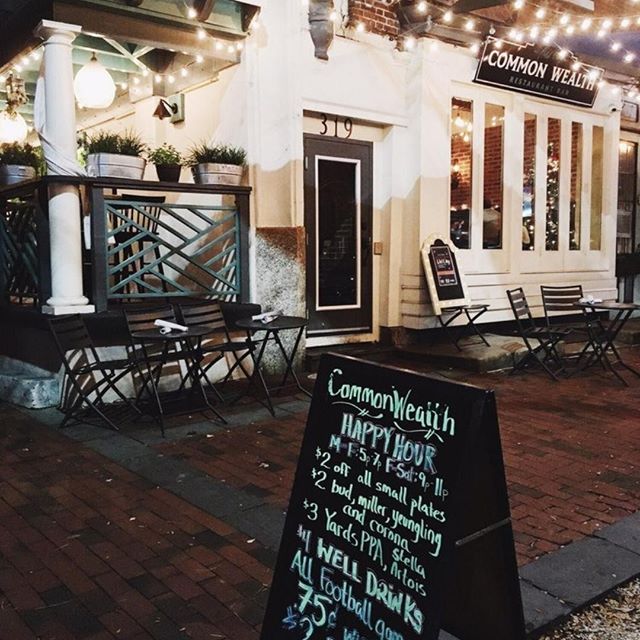 COMMON WEALTH
RESTAURANT BAR
319
CommonWealth
HAPPY HOUR
M-F: 5-7, F-Sat: 9-11p
$2 off all small plates
$2 bud, miller, yeungling
and corona
$3 Yards PPA, Stella
Artois
WELL DRINKS
All Football
75¢